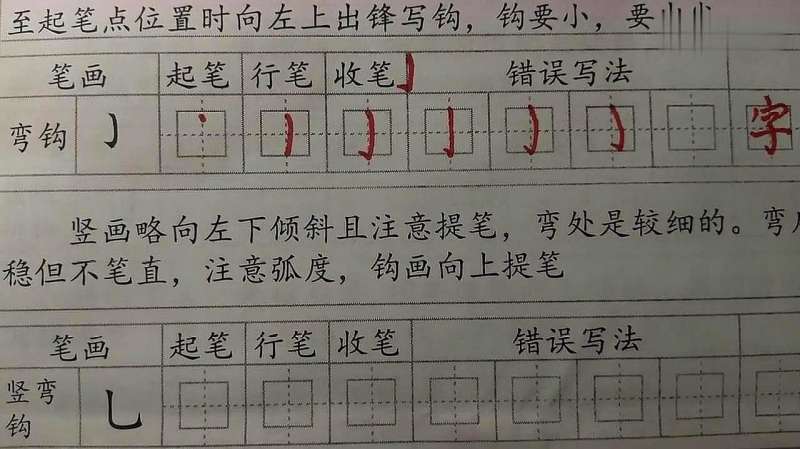 至起笔点位置时向左上出锋写钩，钩要小，要
笔画 起笔 行笔 收笔 错误写法
弯钩 字
竖画略向左下倾斜且注意提笔，弯处是较细的。弯
稳但不笔直，注意弧度，钩画向上提笔
笔画 起笔 行笔 收笔 错误写法
竖弯
钩 乚